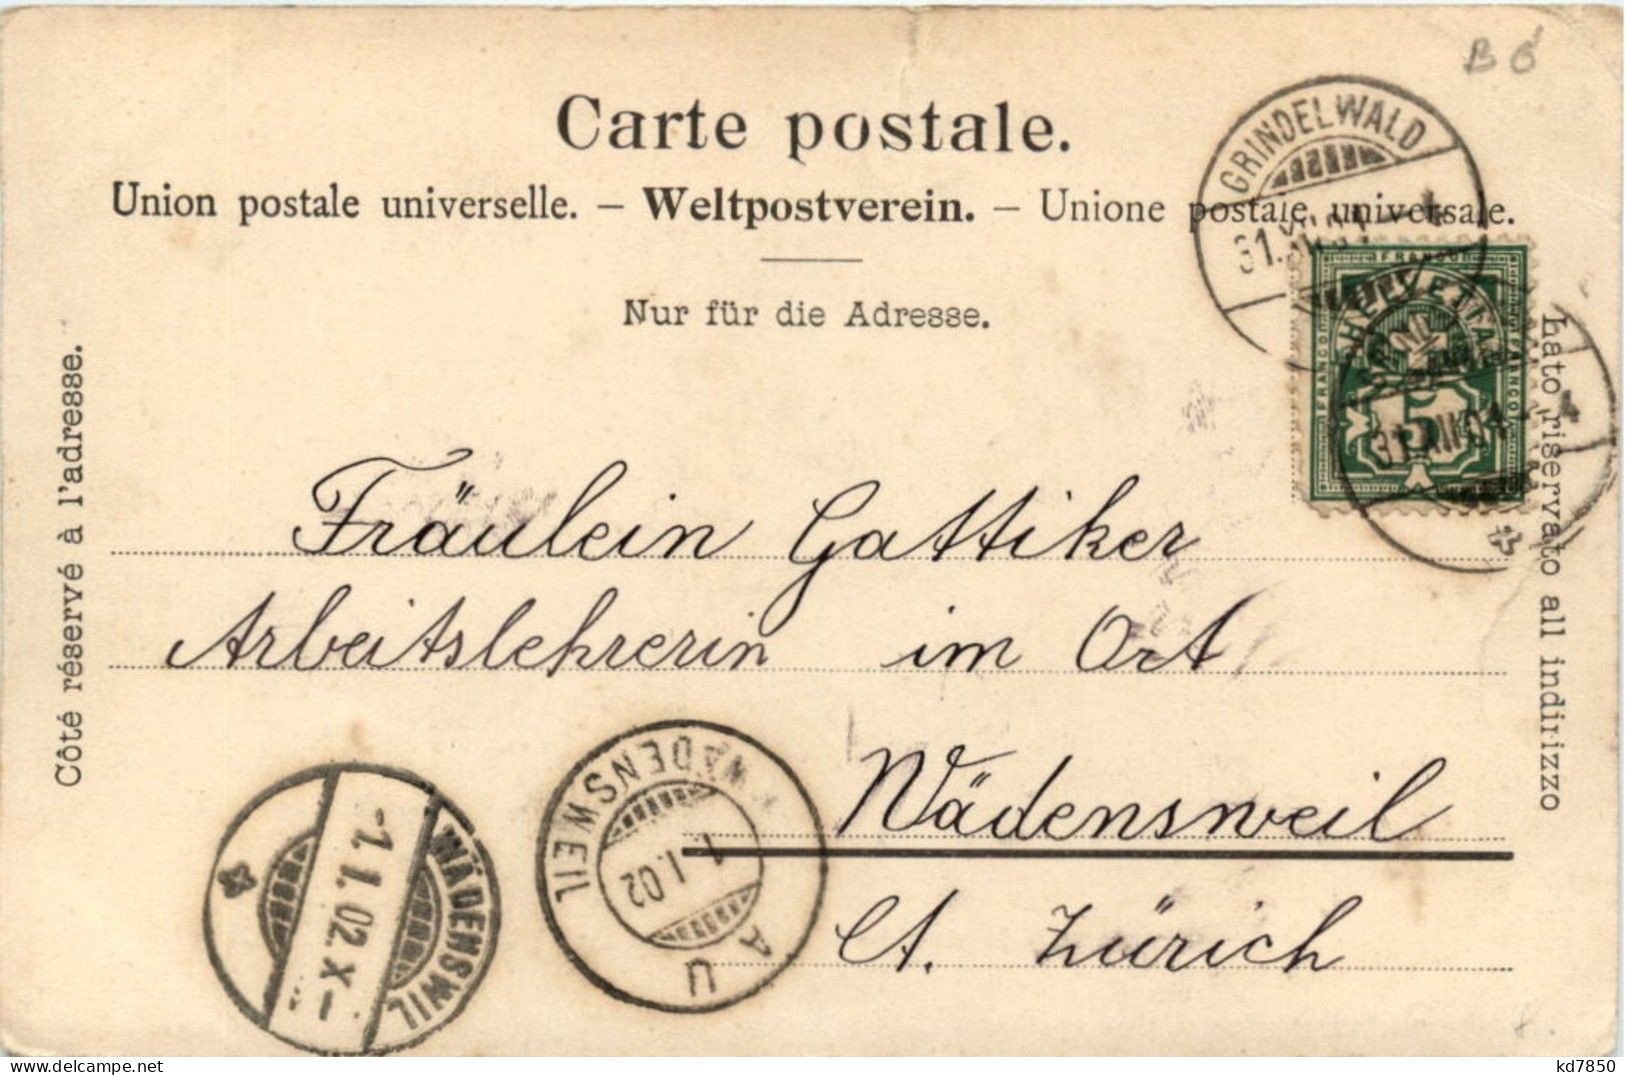 B 6
Carte postale.
Union postale universelle. – Weltpostverein. – Unione postale universale.
Nur für die Adresse.
Côté réservé à l'adresse.
Lato riservato all indirizzo
GRINDELWALD
31.XII.01.–4
FRANCO
HELVETIA
FRANCO
FRANCO
5
31.XII.01.–4
Fräulein Gattiker
Arbeitslehrerin im Ort
Wädensweil
Ct. Zürich
WÄDENSWEIL
1.I.02
AU
WÄDENSWIL
-1.1.02.X-
kd7850